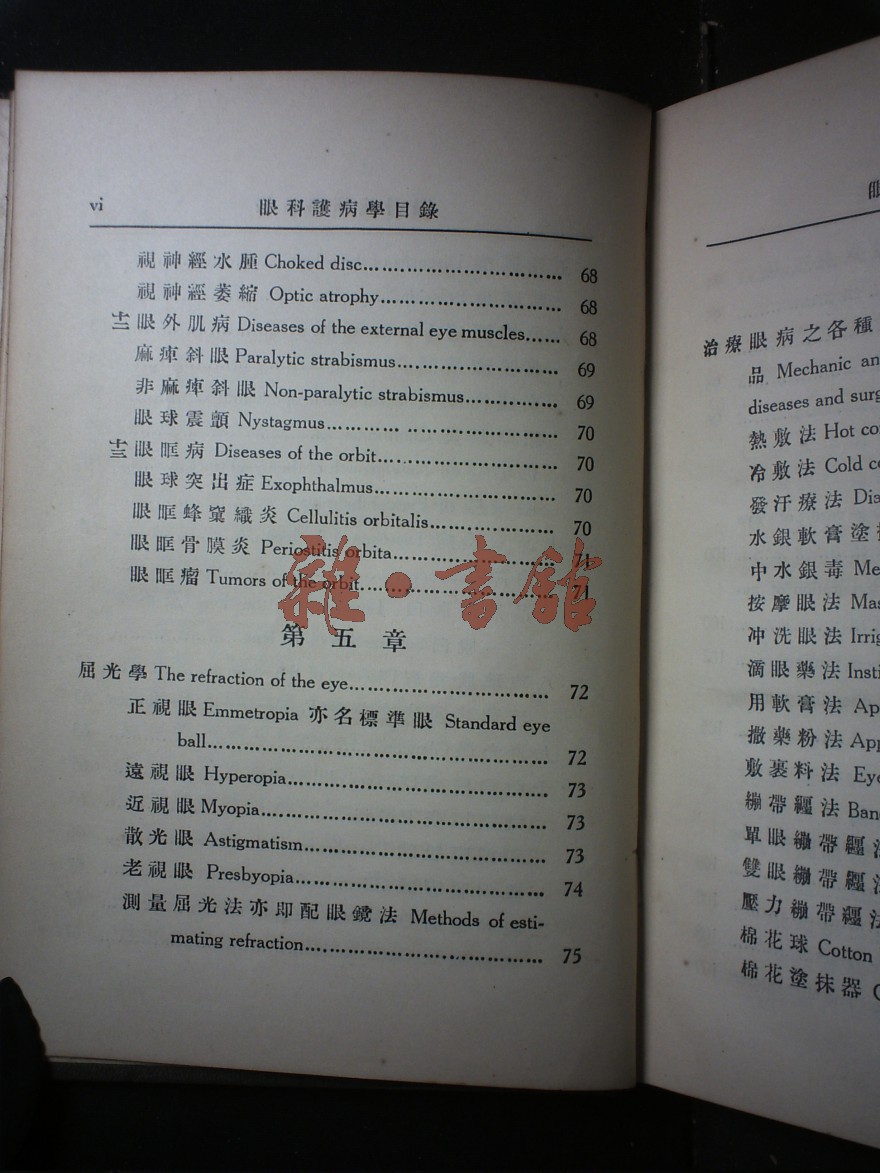 vi 眼科護病學目錄
視神經水腫 Choked disc 68
視神經萎縮 Optic atrophy 68
十二 眼外肌病 Diseases of the external eye muscles 68
麻痺斜眼 Paralytic strabismus 69
非麻痺斜眼 Non-paralytic strabismus 69
眼球震顫 Nystagmus 70
十三 眼眶病 Diseases of the orbit 70
眼球突出症 Exophthalmus 70
眼眶蜂窠織炎 Cellulitis orbitalis 70
眼眶骨膜炎 Periostitis orbita 71
眼眶瘤 Tumors of the orbit 71
雜·書館
第五章
屈光學 The refraction of the eye 72
正視眼 Emmetropia 亦名標準眼 Standard eye
ball 72
遠視眼 Hyperopia 73
近視眼 Myopia 73
散光眼 Astigmatism 73
老視眼 Presbyopia 74
測量屈光法亦即配眼鏡法 Methods of esti-
mating refraction 75
治療眼病之各種
品 Mechanic an
diseases and surg
熱敷法 Hot co
冷敷法 Cold c
發汗療法 Dia
水銀軟膏塗
中水銀毒 Me
按摩眼法 Mas
冲洗眼法 Irrig
滴眼藥法 Insti
用軟膏法 Ap
撒藥粉法 App
敷裹料法 Eye
繃帶纏法 Ban
單眼繃帶纏
雙眼繃帶纏
壓力繃帶纏法
棉花球 Cotton
棉花塗抹器